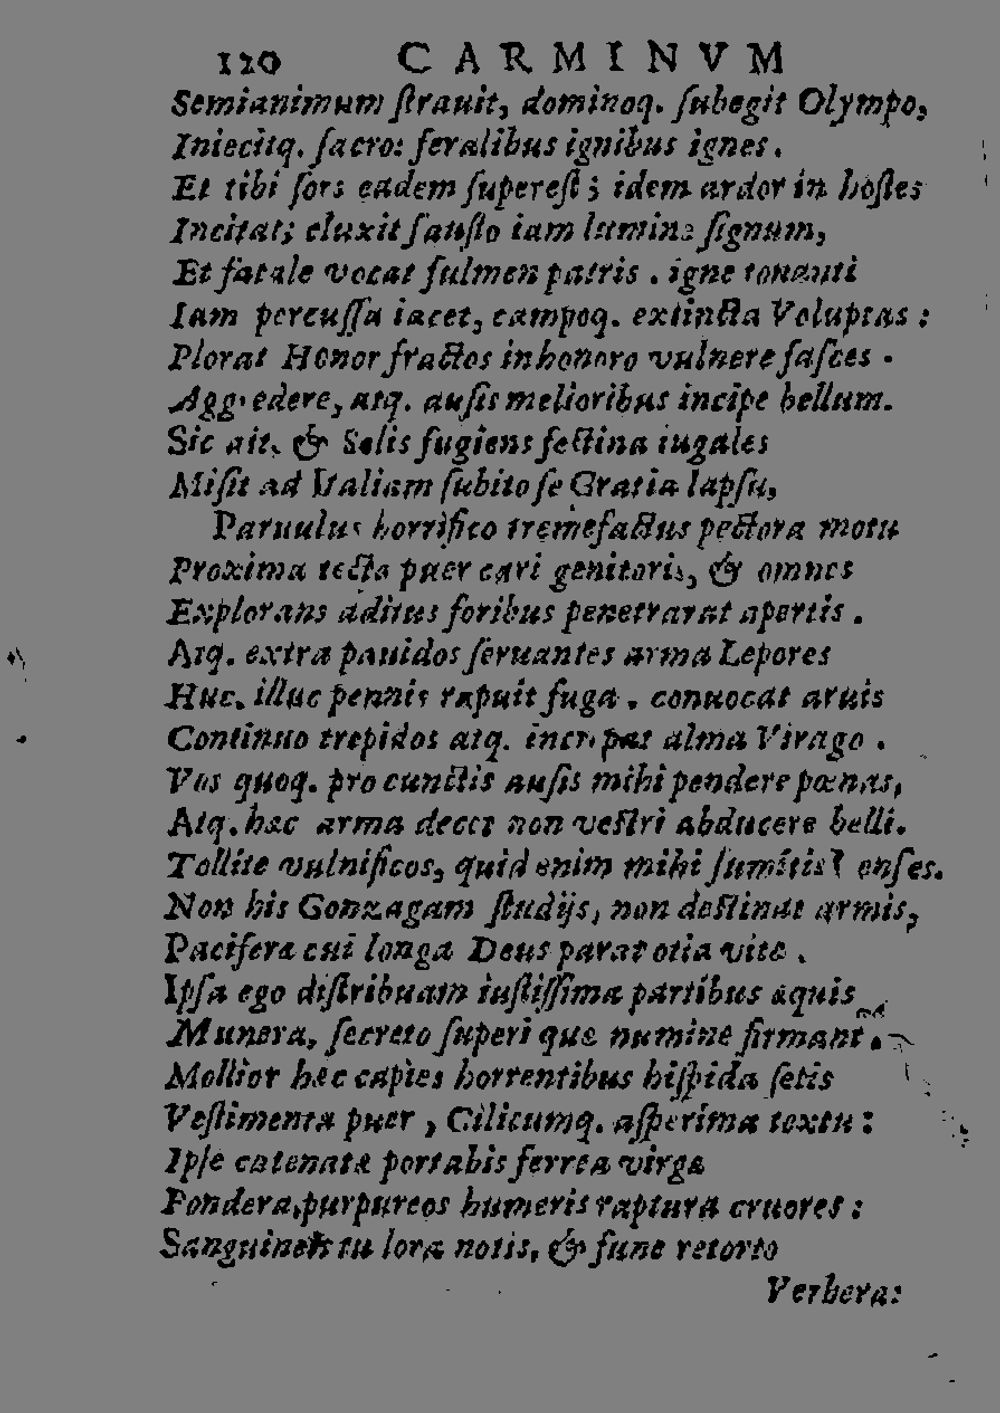 120 CARMINVM
Semianimum ſtrauit, dominoq. ſubegit Olympo,
Iniecitq. ſacro: feralibus ignibus ignes.
Et tibi ſors eadem ſupereſt; idem ardor in hoſtes
Incitat; eluxit fauſto iam lumine ſignum,
Et fatale vocat fulmen patris. igne tonanti
Iam percuſſa iacet, campoq. extincta Voluptas:
Plorat Honor fractos inhonoro vulnere faſces.
Aggredere, atq. auſis melioribus incipe bellum.
Sic ait, & Solis fugiens feſtina iugales
Miſit ad Italiam ſubito ſe Gratia lapſu,
Paruulus horrifico tremefactus pectora motu
Proxima tecta puer cari genitoris, & omnes
Explorans aditus foribus penetrarat apertis.
Atq. extra pauidos ſeruantes arma Lepores
Huc, illuc pennis rapuit fuga. conuocat aruis
Continuo trepidos atq. increpat alma Virago.
Vos quoq. pro cunctis auſis mihi pendere pœnas,
Atq. hæc arma decet non veſtri abducere belli.
Tollite vulnificos, quid enim mihi ſumitis? enſes.
Non his Gonzagam ſtudijs, non deſtinat armis,
Pacifera cui longa Deus parat otia vitæ.
Ipſa ego diſtribuam iuſtiſſima partibus æquis
Munera, ſecreto ſuperi quæ numine firmant.
Mollior hæc capies horrentibus hiſpida ſetis
Veſtimenta puer, Cilicumq. aſperima textu:
Ipſe catenatæ portabis ferrea virgæ
Pondera, purpureos humeris raptura cruores:
Sanguineis tu lora notis, & fune retorto
Verbera: